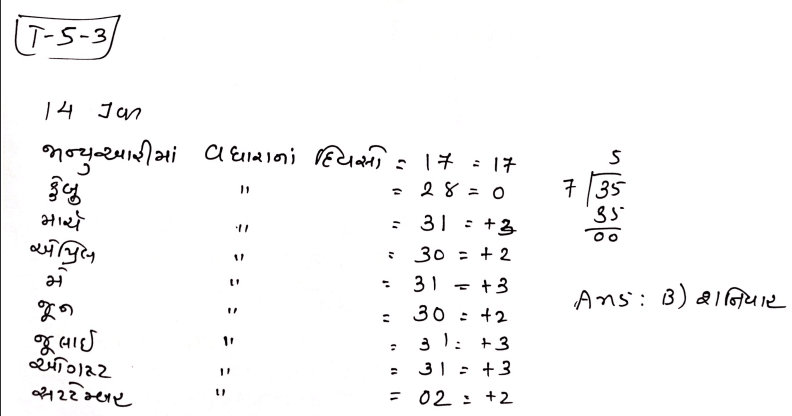 T-5-3
14 Jan
જાન્યુઆરીમાં વધારાનાં દિવસો = 17 = 17
ફેબ્રુ " = 28 = 0
માર્ચ " = 31 = +3
એપ્રિલ " = 30 = +2
મે " = 31 = +3
જૂન " = 30 = +2
જૂલાઈ " = 31 = +3
ઓગષ્ટ " = 31 = +3
સપ્ટેમ્બર " = 02 = +2
5
7 35
35
00
Ans : B) શનિવાર